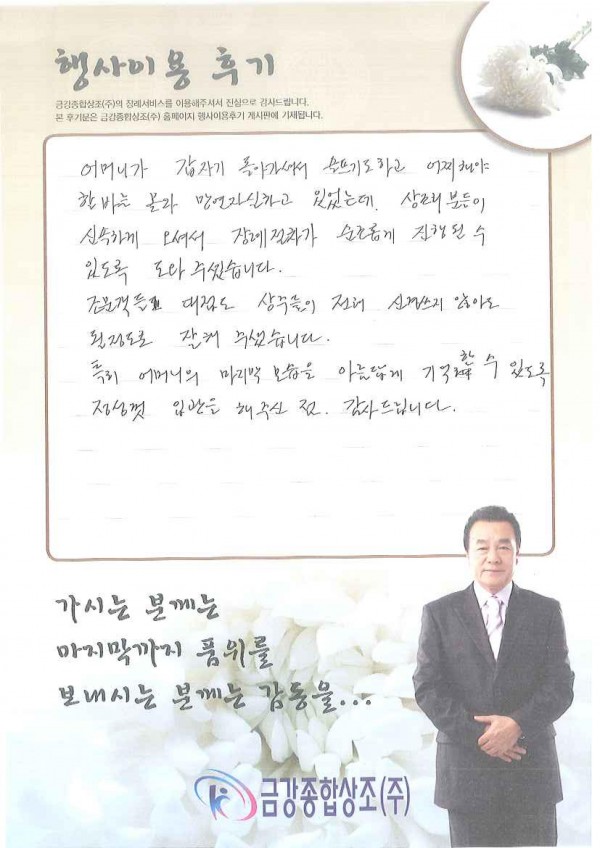 행사이용 후기
금강종합상조(주)의 장례서비스를 이용해주셔서 진심으로 감사드립니다.
본 후기문은 금강종합상조(주) 홈페이지 행사이용후기 게시판에 기재됩니다.
어머니가 갑자기 돌아가셔서 슬프기도하고 어찌해야
할바를 몰라 망연자실하고 있었는데, 상조회분들이
신속하게 오셔서 장례절차가 순조롭게 진행될 수
있도록 도와 주셨습니다.
조문객들 대접도 상주들이 전혀 신경쓰지 않아도
될정도로 잘해 주셨습니다.
특히 어머니의 마지막 모습을 아름답게 기억할 수 있도록
정성껏 입관을 해주신 점. 감사드립니다.
가시는 분께는
마지막까지 품위를
보내시는 분께는 감동을...
금강종합상조(주)